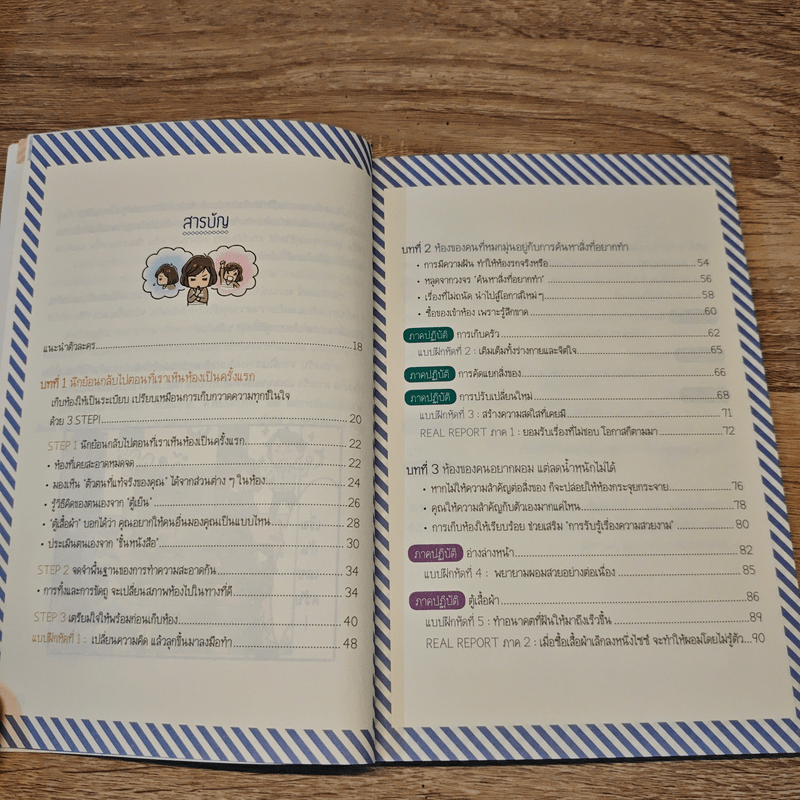 สารบัญ
แนะนำตัวละคร 18
บทที่ 1 นึกย้อนกลับไปตอนที่เราเห็นห้องเป็นครั้งแรก
เก็บห้องให้เป็นระเบียบ เปรียบเหมือนการเก็บกวาดความทุกข์ในใจ
ด้วย 3 STEP! 20
STEP 1 นึกย้อนกลับไปตอนที่เราเห็นห้องเป็นครั้งแรก 22
• ห้องที่เคยสะอาดหมดจด 22
• มองเห็น "ตัวตนที่แท้จริงของคุณ" ได้จากส่วนต่าง ๆ ในห้อง 24
• รู้วิธีคิดของตนเองจาก "ตู้เย็น" 26
• "ตู้เสื้อผ้า" บอกได้ว่า คุณอยากให้คนอื่นมองคุณเป็นแบบไหน 28
• ประเมินตนเองจาก "ชั้นหนังสือ" 30
STEP 2 จดจำพื้นฐานของการทำความสะอาดกัน 34
• การทิ้งและการขัดถู จะเปลี่ยนสภาพห้องไปในทางที่ดี 34
STEP 3 เตรียมใจให้พร้อมก่อนเก็บห้อง 40
แบบฝึกหัดที่ 1 : เปลี่ยนความคิด แล้วลุกขึ้นมาลงมือทำ 48
บทที่ 2 ห้องของคนที่หมกมุ่นอยู่กับการค้นหาสิ่งที่อยากทำ
• การมีความฝัน ทำให้ห้องรกจริงหรือ 54
• หลุดจากวงจร "ค้นหาสิ่งที่อยากทำ" 56
• เรื่องที่ไม่ถนัด นำไปสู่โอกาสใหม่ ๆ 58
• ซื้อของเข้าห้อง เพราะรู้สึกขาด 60
ภาคปฏิบัติ การเก็บครัว 62
แบบฝึกหัดที่ 2 : เติมเต็มทั้งร่างกายและจิตใจ 65
ภาคปฏิบัติ การคัดแยกสิ่งของ 66
ภาคปฏิบัติ การปรับเปลี่ยนใหม่ 68
แบบฝึกหัดที่ 3 : สร้างความสดใสที่เคยมี 71
REAL REPORT ภาค 1 : ยอมรับเรื่องที่ไม่ชอบ โอกาสก็ตามมา 72
บทที่ 3 ห้องของคนอยากผอม แต่ลดน้ำหนักไม่ได้
• หากไม่ให้ความสำคัญต่อสิ่งของ ก็จะปล่อยให้ห้องกระจุยกระจาย 76
• คุณให้ความสำคัญกับตัวเองมากแค่ไหน 78
• การเก็บห้องให้เรียบร้อย ช่วยเสริม "การรับรู้เรื่องความสวยงาม" 80
ภาคปฏิบัติ อ่างล่างหน้า 82
แบบฝึกหัดที่ 4 : พยายามผอมสวยอย่างต่อเนื่อง 85
ภาคปฏิบัติ ตู้เสื้อผ้า 86
แบบฝึกหัดที่ 5 : ทำอนาคตที่ฝันให้มาถึงเร็วขึ้น 89
REAL REPORT ภาค 2 : เมื่อซื้อเสื้อผ้าเล็กลงหนึ่งไซซ์ จะทำให้ผอมโดยไม่รู้ตัว 90